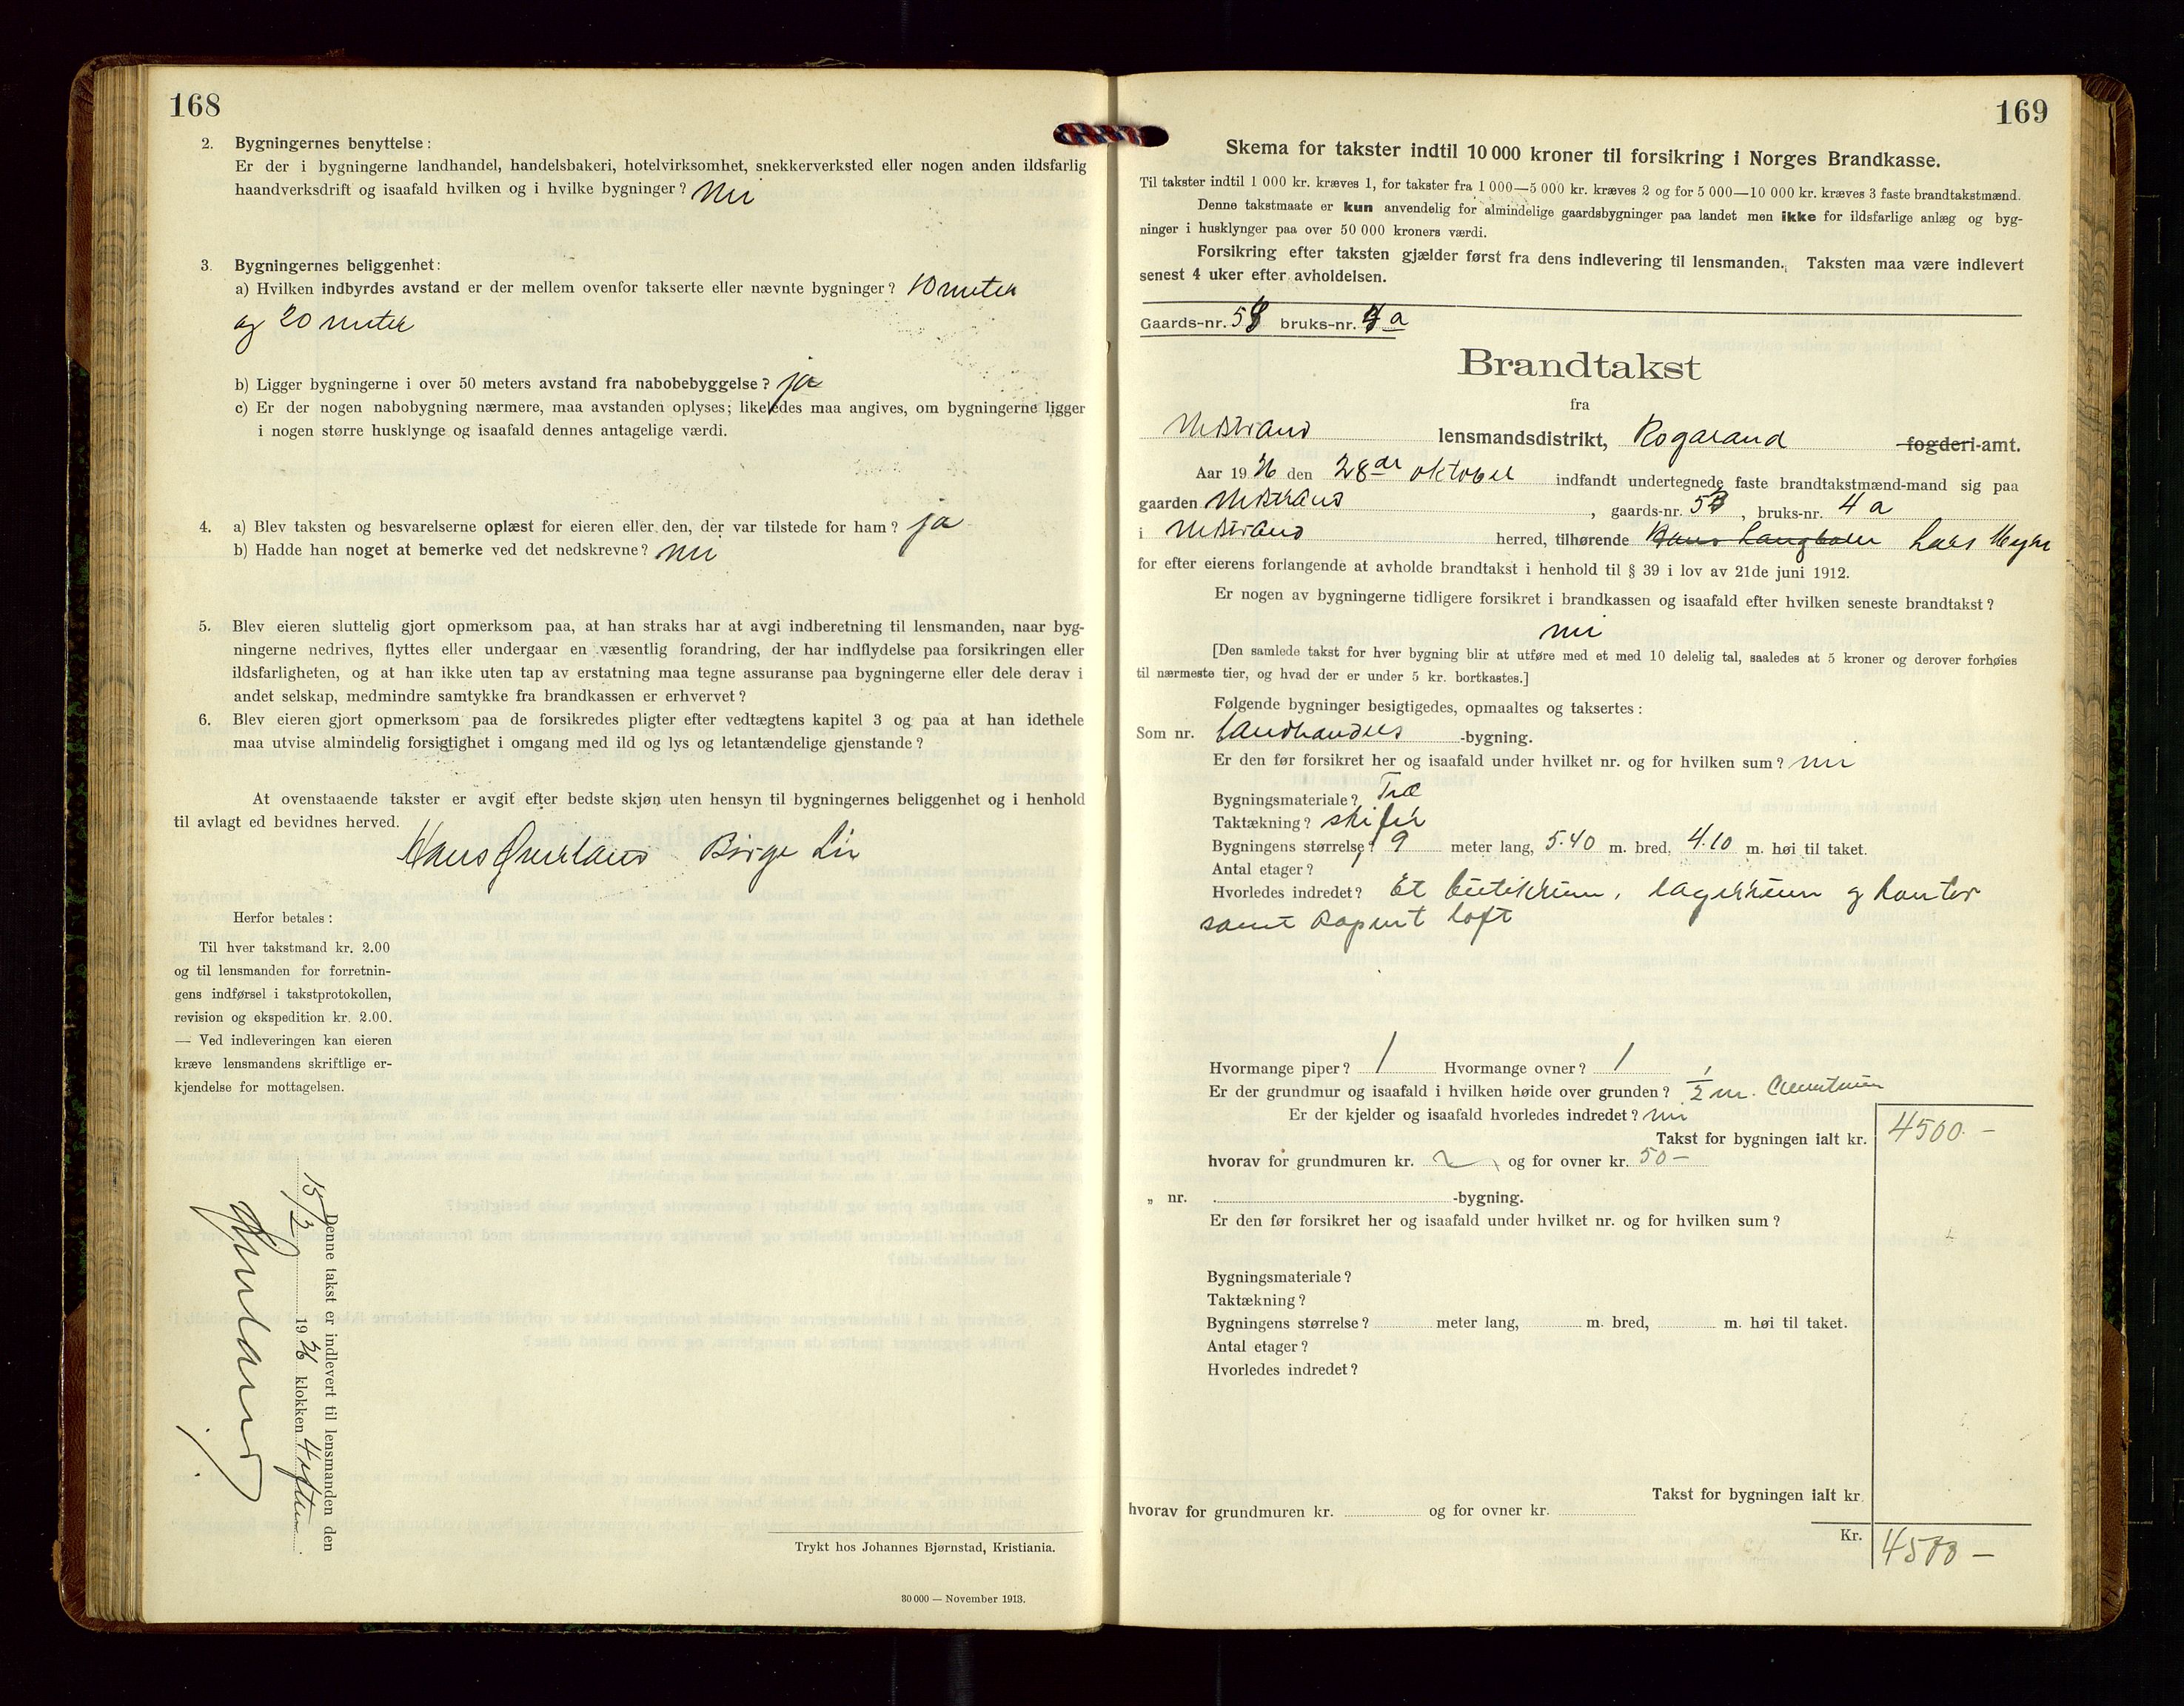 168
2. Bygningernes benyttelse:
Er der i bygningerne landhandel, handelsbakeri, hotelvirksomhet, snekkerverksted eller nogen anden ildsfarlig
haandverksdrift og isaafald hvilken og i hvilke bygninger? nei
3. Bygningernes beliggenhet:
a) Hvilken indbyrdes avstand er der mellem ovenfor takserte eller nævnte bygninger? 10 meter
og 20 meter
b) Ligger bygningerne i over 50 meters avstand fra nabobebyggelse? ja
c) Er der nogen nabobygning nærmere, maa avstanden oplyses; likeledes maa angives, om bygningerne ligger
i nogen større husklynge og isaafald dennes antagelige værdi.
4. a) Blev taksten og besvarelserne oplæst for eieren eller den, der var tilstede for ham? ja
b) Hadde han noget at bemerke ved det nedskrevne? nei
5. Blev eieren sluttelig gjort opmerksom paa, at han straks har at avgi indberetning til lensmanden, naar byg-
ningerne nedrives, flyttes eller undergaar en væsentlig forandring, der har indflydelse paa forsikringen eller
ildsfarligheten, og at han ikke uten tap av erstatning maa tegne assuranse paa bygningerne eller dele derav i
andet selskap, medmindre samtykke fra brandkassen er erhvervet?
6. Blev eieren gjort opmerksom paa de forsikredes pligter efter vedtægtens kapitel 3 og paa at han idethele
maa utvise almindelig forsigtighet i omgang med ild og lys og letantændelige gjenstande?
At ovenstaaende takster er avgit efter bedste skjøn uten hensyn til bygningernes beliggenhet og i henhold
til avlagt ed bevidnes herved.
Hans Øverland Børge Lie
Herfor betales:
Til hver takstmand kr. 2.00
og til lensmanden for forretnin-
gens indførsel i takstprotokollen,
revision og ekspedition kr. 2.00.
— Ved indleveringen kan eieren
kræve lensmandens skriftlige er-
kjendelse for mottagelsen.
Denne takst er indlevert til lensmanden den
15/2 1926 klokken 4 eftm
Trykt hos Johannes Bjørnstad, Kristiania.
30 000 — November 1913.
169
Skema for takster indtil 10 000 kroner til forsikring i Norges Brandkasse.
Til takster indtil 1 000 kr. kræves 1, for takster fra 1 000—5 000 kr. kræves 2 og for 5 000—10 000 kr. kræves 3 faste brandtakstmænd.
Denne takstmaate er kun anvendelig for almindelige gaardsbygninger paa landet men ikke for ildsfarlige anlæg og byg-
ninger i husklynger paa over 50 000 kroners værdi.
Forsikring efter taksten gjælder først fra dens indlevering til lensmanden. Taksten maa være indlevert
senest 4 uker efter avholdelsen.
Gaards-nr. 58 bruks-nr. 4 a
Brandtakst
fra
lensmandsdistrikt, Rogaland fogderi-amt.
Aar 1926 den 28de oktober indfandt undertegnede faste brandtakstmænd-mand sig paa
gaarden , gaards-nr. 58, bruks-nr. 4 a
i herred, tilhørende Lars
for efter eierens forlangende at avholde brandtakst i henhold til § 39 i lov av 21de juni 1912.
Er nogen av bygningerne tidligere forsikret i brandkassen og isaafald efter hvilken seneste brandtakst?
nei
[Den samlede takst for hver bygning blir at utføre med et med 10 delelig tal, saaledes at 5 kroner og derover forhøies
til nærmeste tier, og hvad der er under 5 kr. bortkastes.]
Følgende bygninger besigtigedes, opmaaltes og taksertes:
Som nr. landhandels -bygning.
Er den før forsikret her og isaafald under hvilket nr. og for hvilken sum? nei
Bygningsmateriale? Træ
Taktækning? skifer
Bygningens størrelse? 9 meter lang, 5.40 m. bred, 4.10 m. høi til taket.
Antal etager? 1
Hvorledes indredet? Et butikrum, lagerrum og kontor
samt rapunt loft
Hvormange piper? 1 Hvormange ovner? 1
Er der grundmur og isaafald i hvilken høide over grunden? 1/2 m. Cementmur
Er der kjelder og isaafald hvorledes indredet? nei
Takst for bygningen ialt kr. 4500 –
hvorav for grundmuren kr. og for ovner kr. 50 –
„ nr. -bygning.
Er den før forsikret her og isaafald under hvilket nr. og for hvilken sum?
Bygningsmateriale?
Taktækning?
Bygningens størrelse? meter lang, m. bred, m. høi til taket.
Antal etager?
Hvorledes indredet?
Takst for bygningen ialt kr.
hvorav for grundmuren kr. og for ovner kr.
Kr. 4500 –